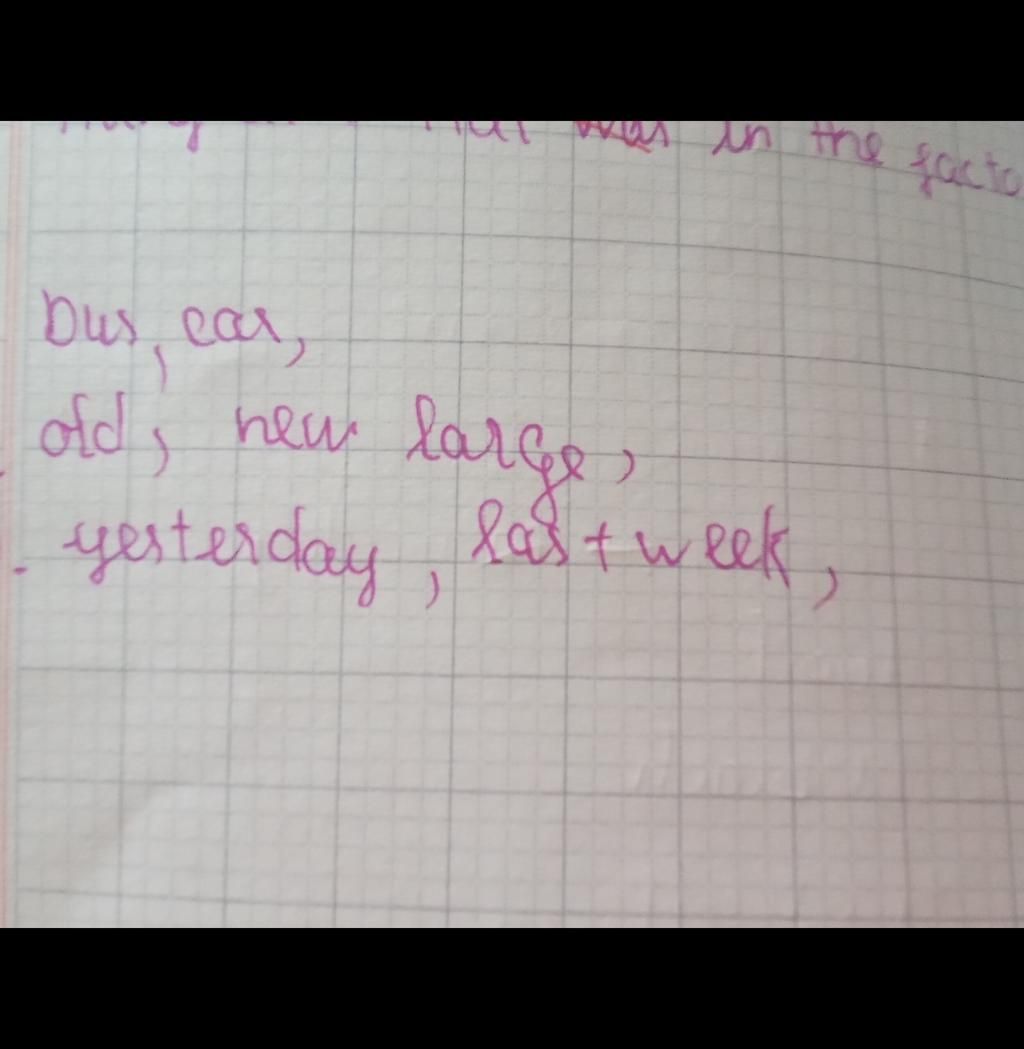 was in the
bus, car,
old, new large,
yesterday, last week,